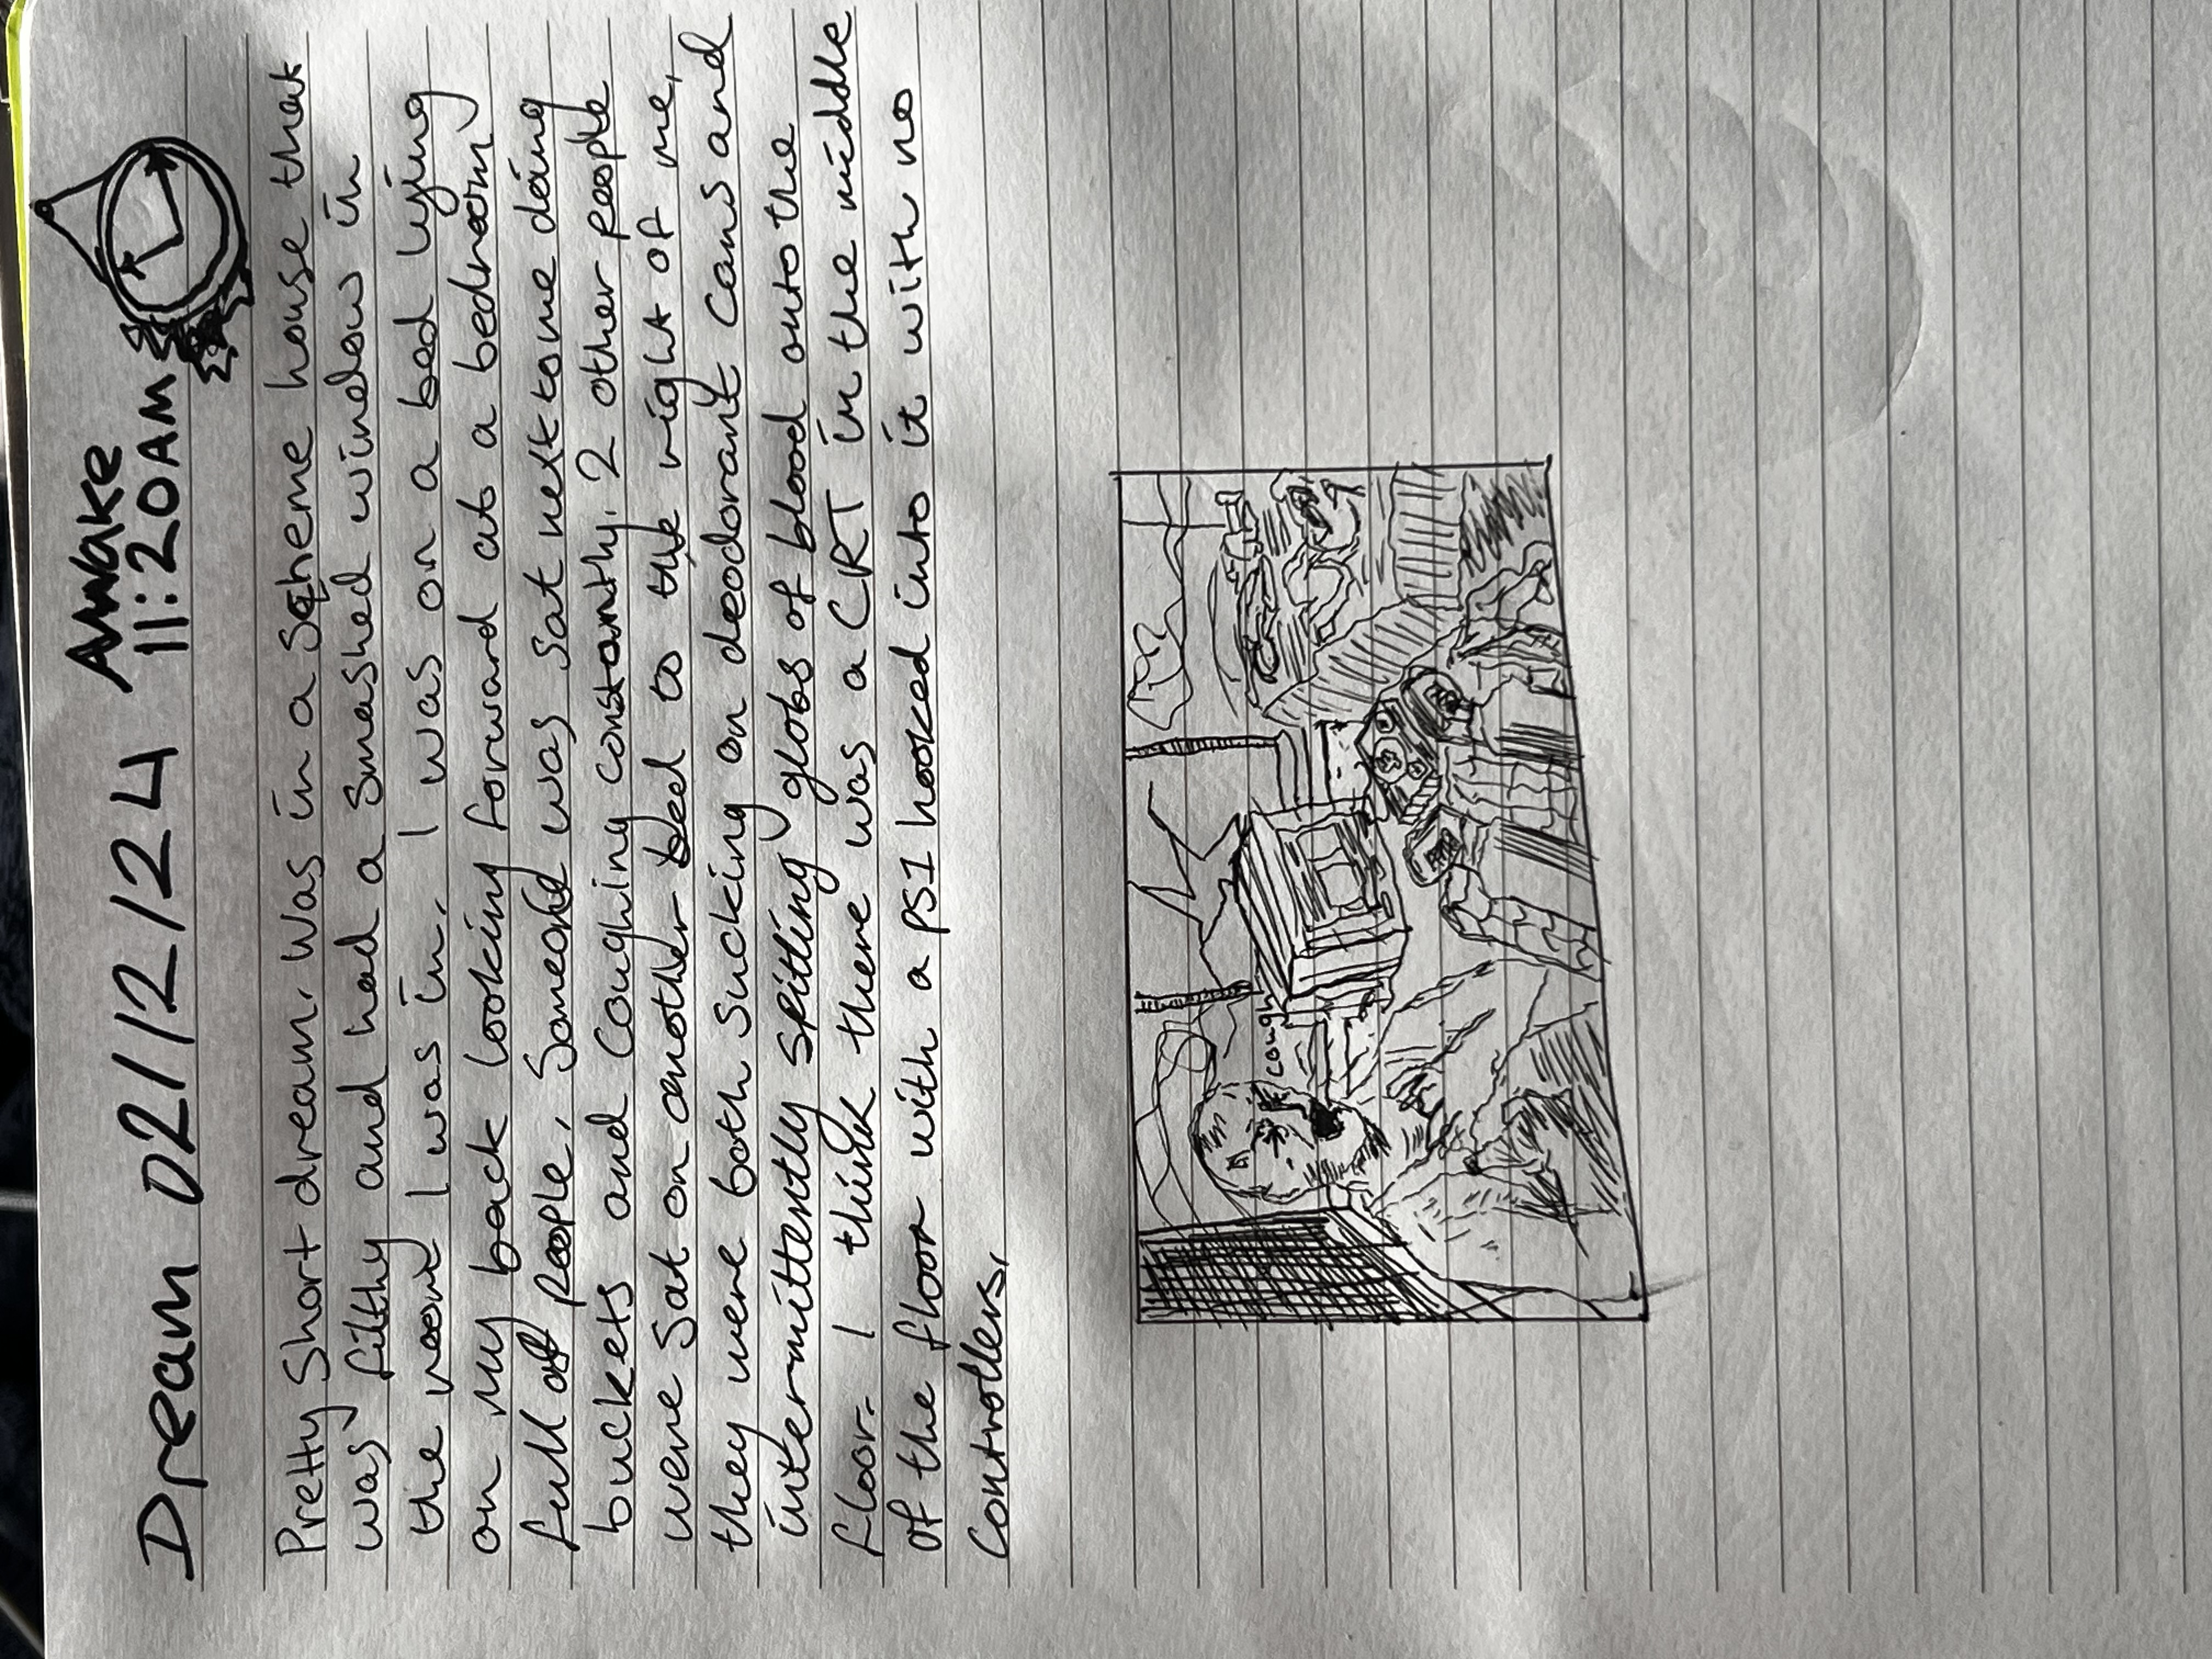 Dream 02/12/24
Awake
11:20AM
Pretty Short dream. Was in a Scheme house that
was filthy and had a smashed window in
the room I was in. I was on a bed lying
on my back looking forward at a bedroom
full of people. Someone was sat next to me doing
buckets and coughing constantly. 2 other people
were sat on another bed to the right of me,
they were both sucking on deodorant cans and
intermittently spitting globs of blood onto the
floor. I think there was a CRT in the middle
of the floor with a PS1 hooked into it with no
controllers.
cough